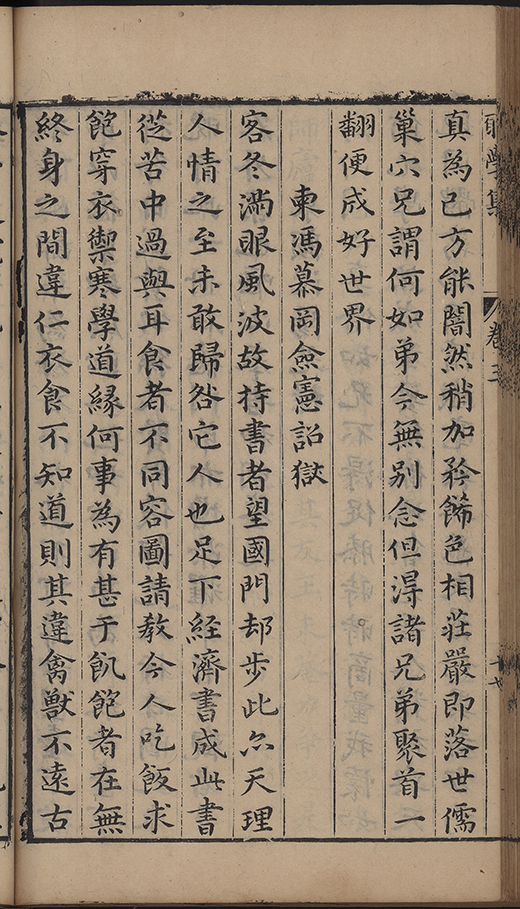 學集 卷三
真為已方能闇然稍加矜飾色相莊嚴即落世儒
巢穴兄謂何如弟今無別念但得諸兄弟聚首一
翻便成好世界
柬馮慕岡僉憲詔獄
客冬滿眼風波故持書者望國門却步此亦天理
人情之至未敢歸咎它人也足下經濟書成此書
從苦中過與耳食者不同容圖請教今人吃飯求
飽穿衣禦寒學道緣何事為有甚于飢飽者在無
終身之間違仁衣食不知道則其違禽獸不遠古